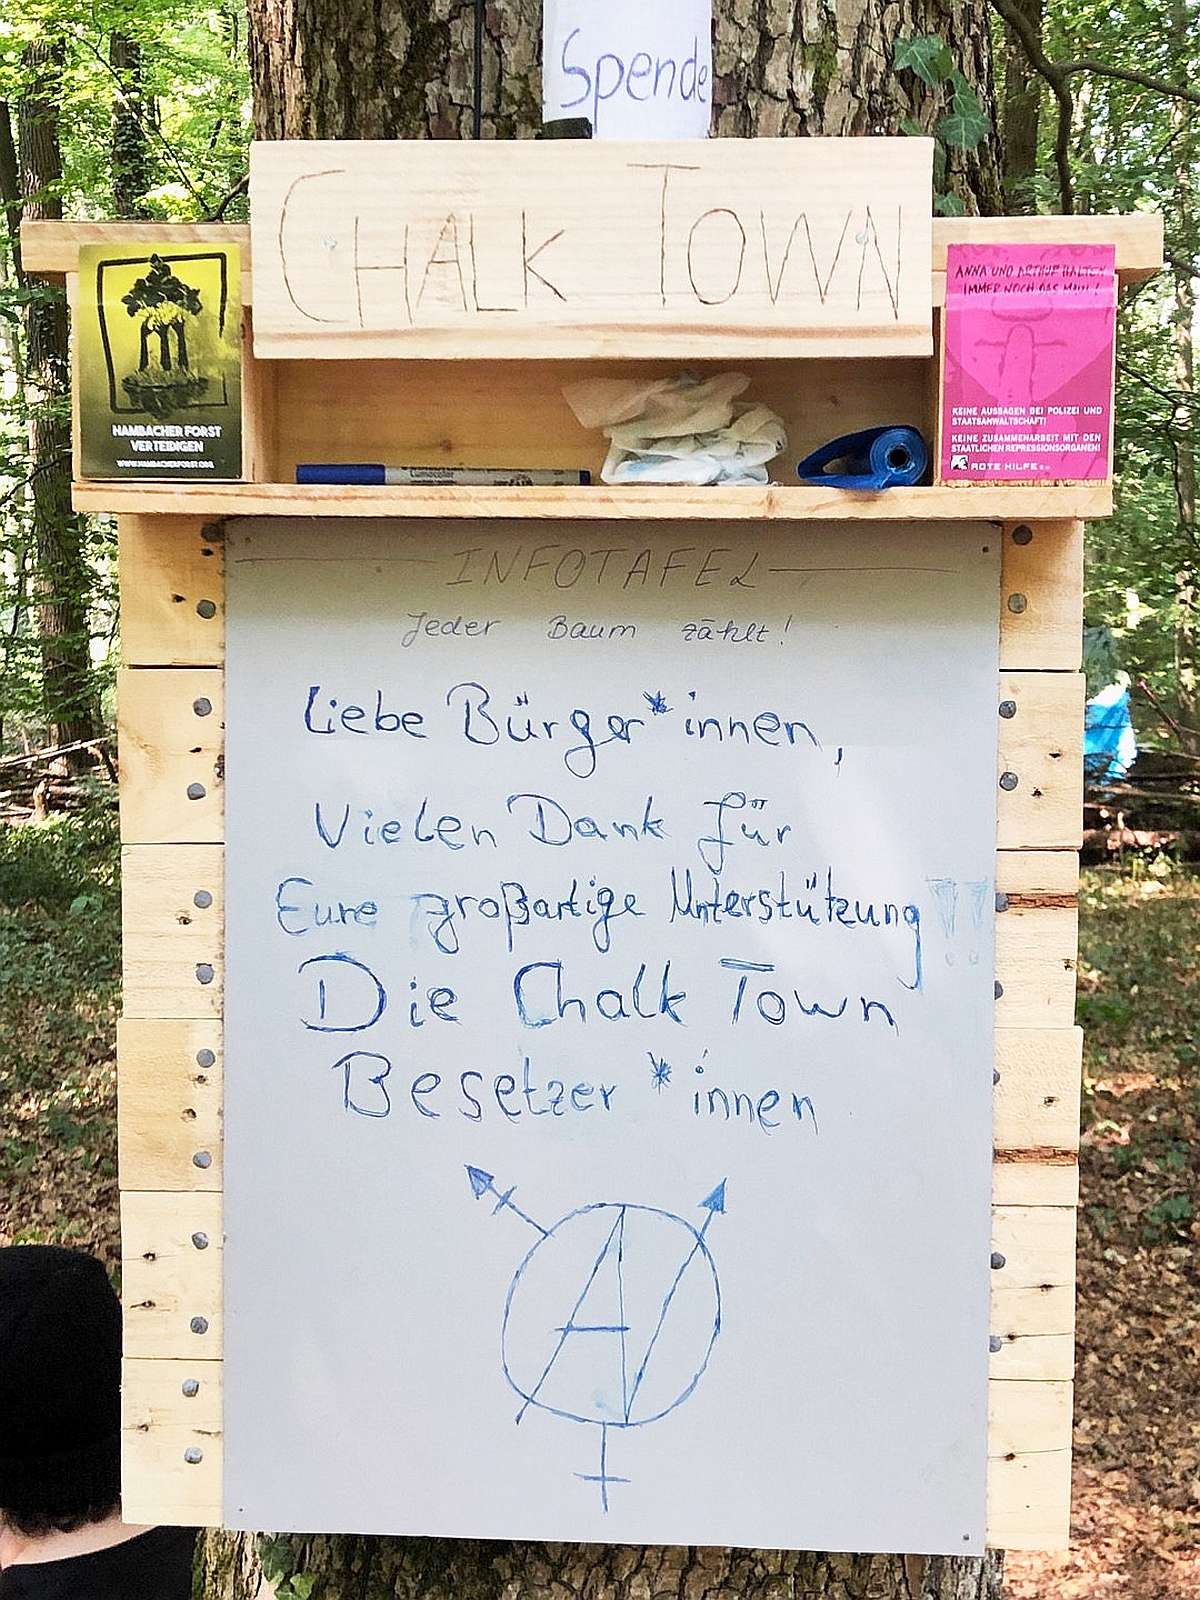 Spende
CHALK TOWN
HAMBACHER FORST
VERTEIDIGEN
WWW.HAMBACHERFORST.ORG
ANNA UND ARTHUR HALTEN
IMMER NOCH DAS MAUL!
KEINE AUSSAGEN BEI POLIZEI UND
STAATSANWALTSCHAFT!
KEINE ZUSAMMENARBEIT MIT DEN
STAATLICHEN REPRESSIONSORGANEN!
ROTE HILFE e.V.
INFOTAFEL
Jeder Baum zählt!
Liebe Bürger*innen,
Vielen Dank für
Eure großartige Unterstützung!!
Die Chalk Town
Besetzer*innen